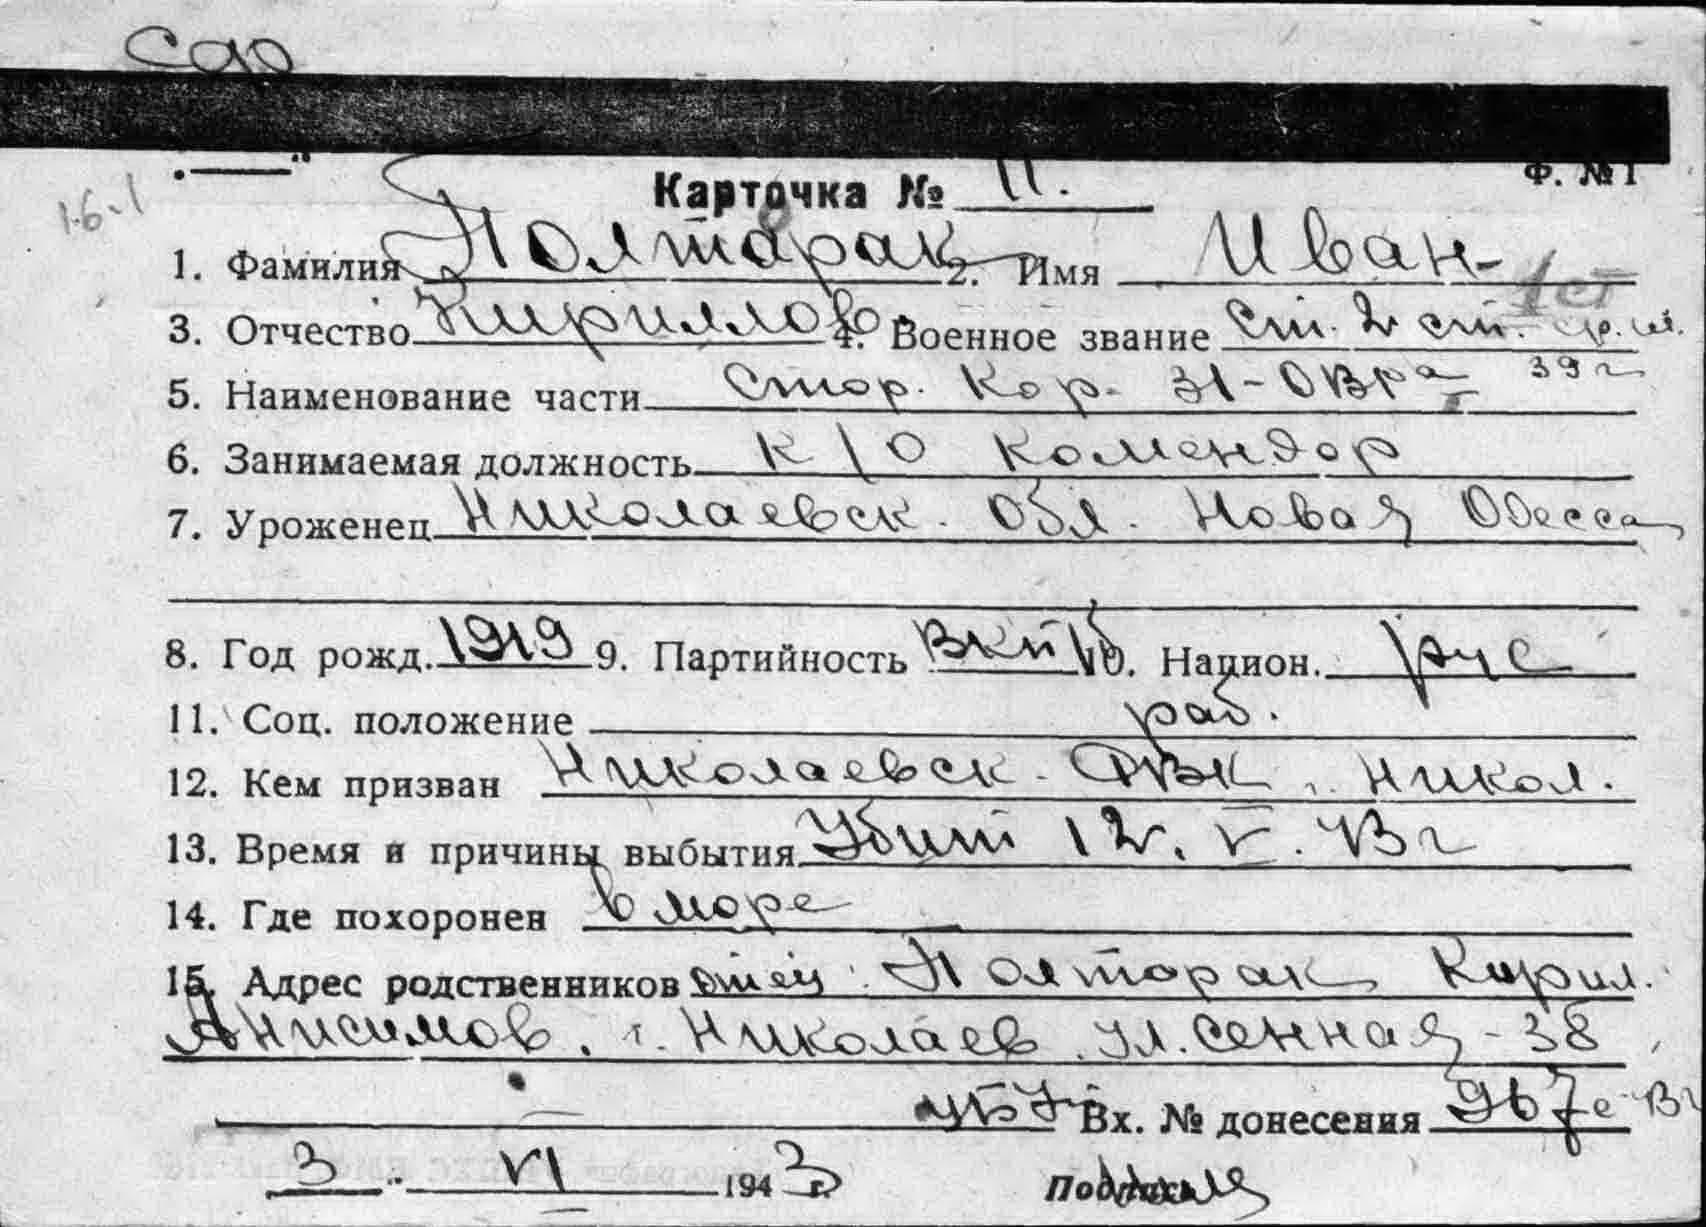 Ф. №1
Карточка № 11.
1. Фамилия Полторак 2. Имя Иван
1 ст
3. Отчество Кириллов. 4. Военное звание Ст. 2 ст.
5. Наименование части Стор. Кор. 31-ОВРа 39 г
6. Занимаемая должность к/о комендор
7. Уроженец Николаевск. Обл. Новая Одесса
8. Год рожд. 1919 9. Партийность ВКП/б 10. Национ. рус
11. Соц. положение раб.
12. Кем призван Николаевск. РВК, Никол.
13. Время и причины выбытия Убит 12. V. 43 г
14. Где похоронен в море
15. Адрес родственников отец: Полторак Кирил.
Анисимов. г. Николаев. ул. Сенная - 38
Вх. № донесения 967с 43 г
3 " VI 1943 г.
Подпись